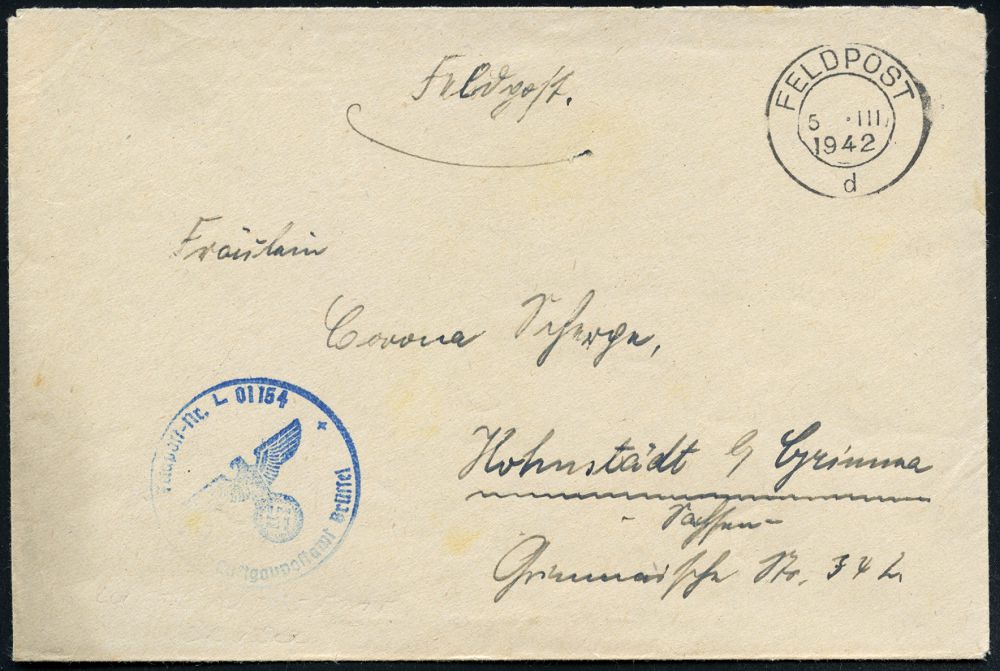 Feldpost.
FELDPOST
5 .III.
1942
d
Fräulein
Corona Scherpe,
Feldpost-Nr. L 01154
Luftgaupostamt Brüssel
Hohnstädt b/ Grimma
- Sachsen -
Grimmaische Str. 34